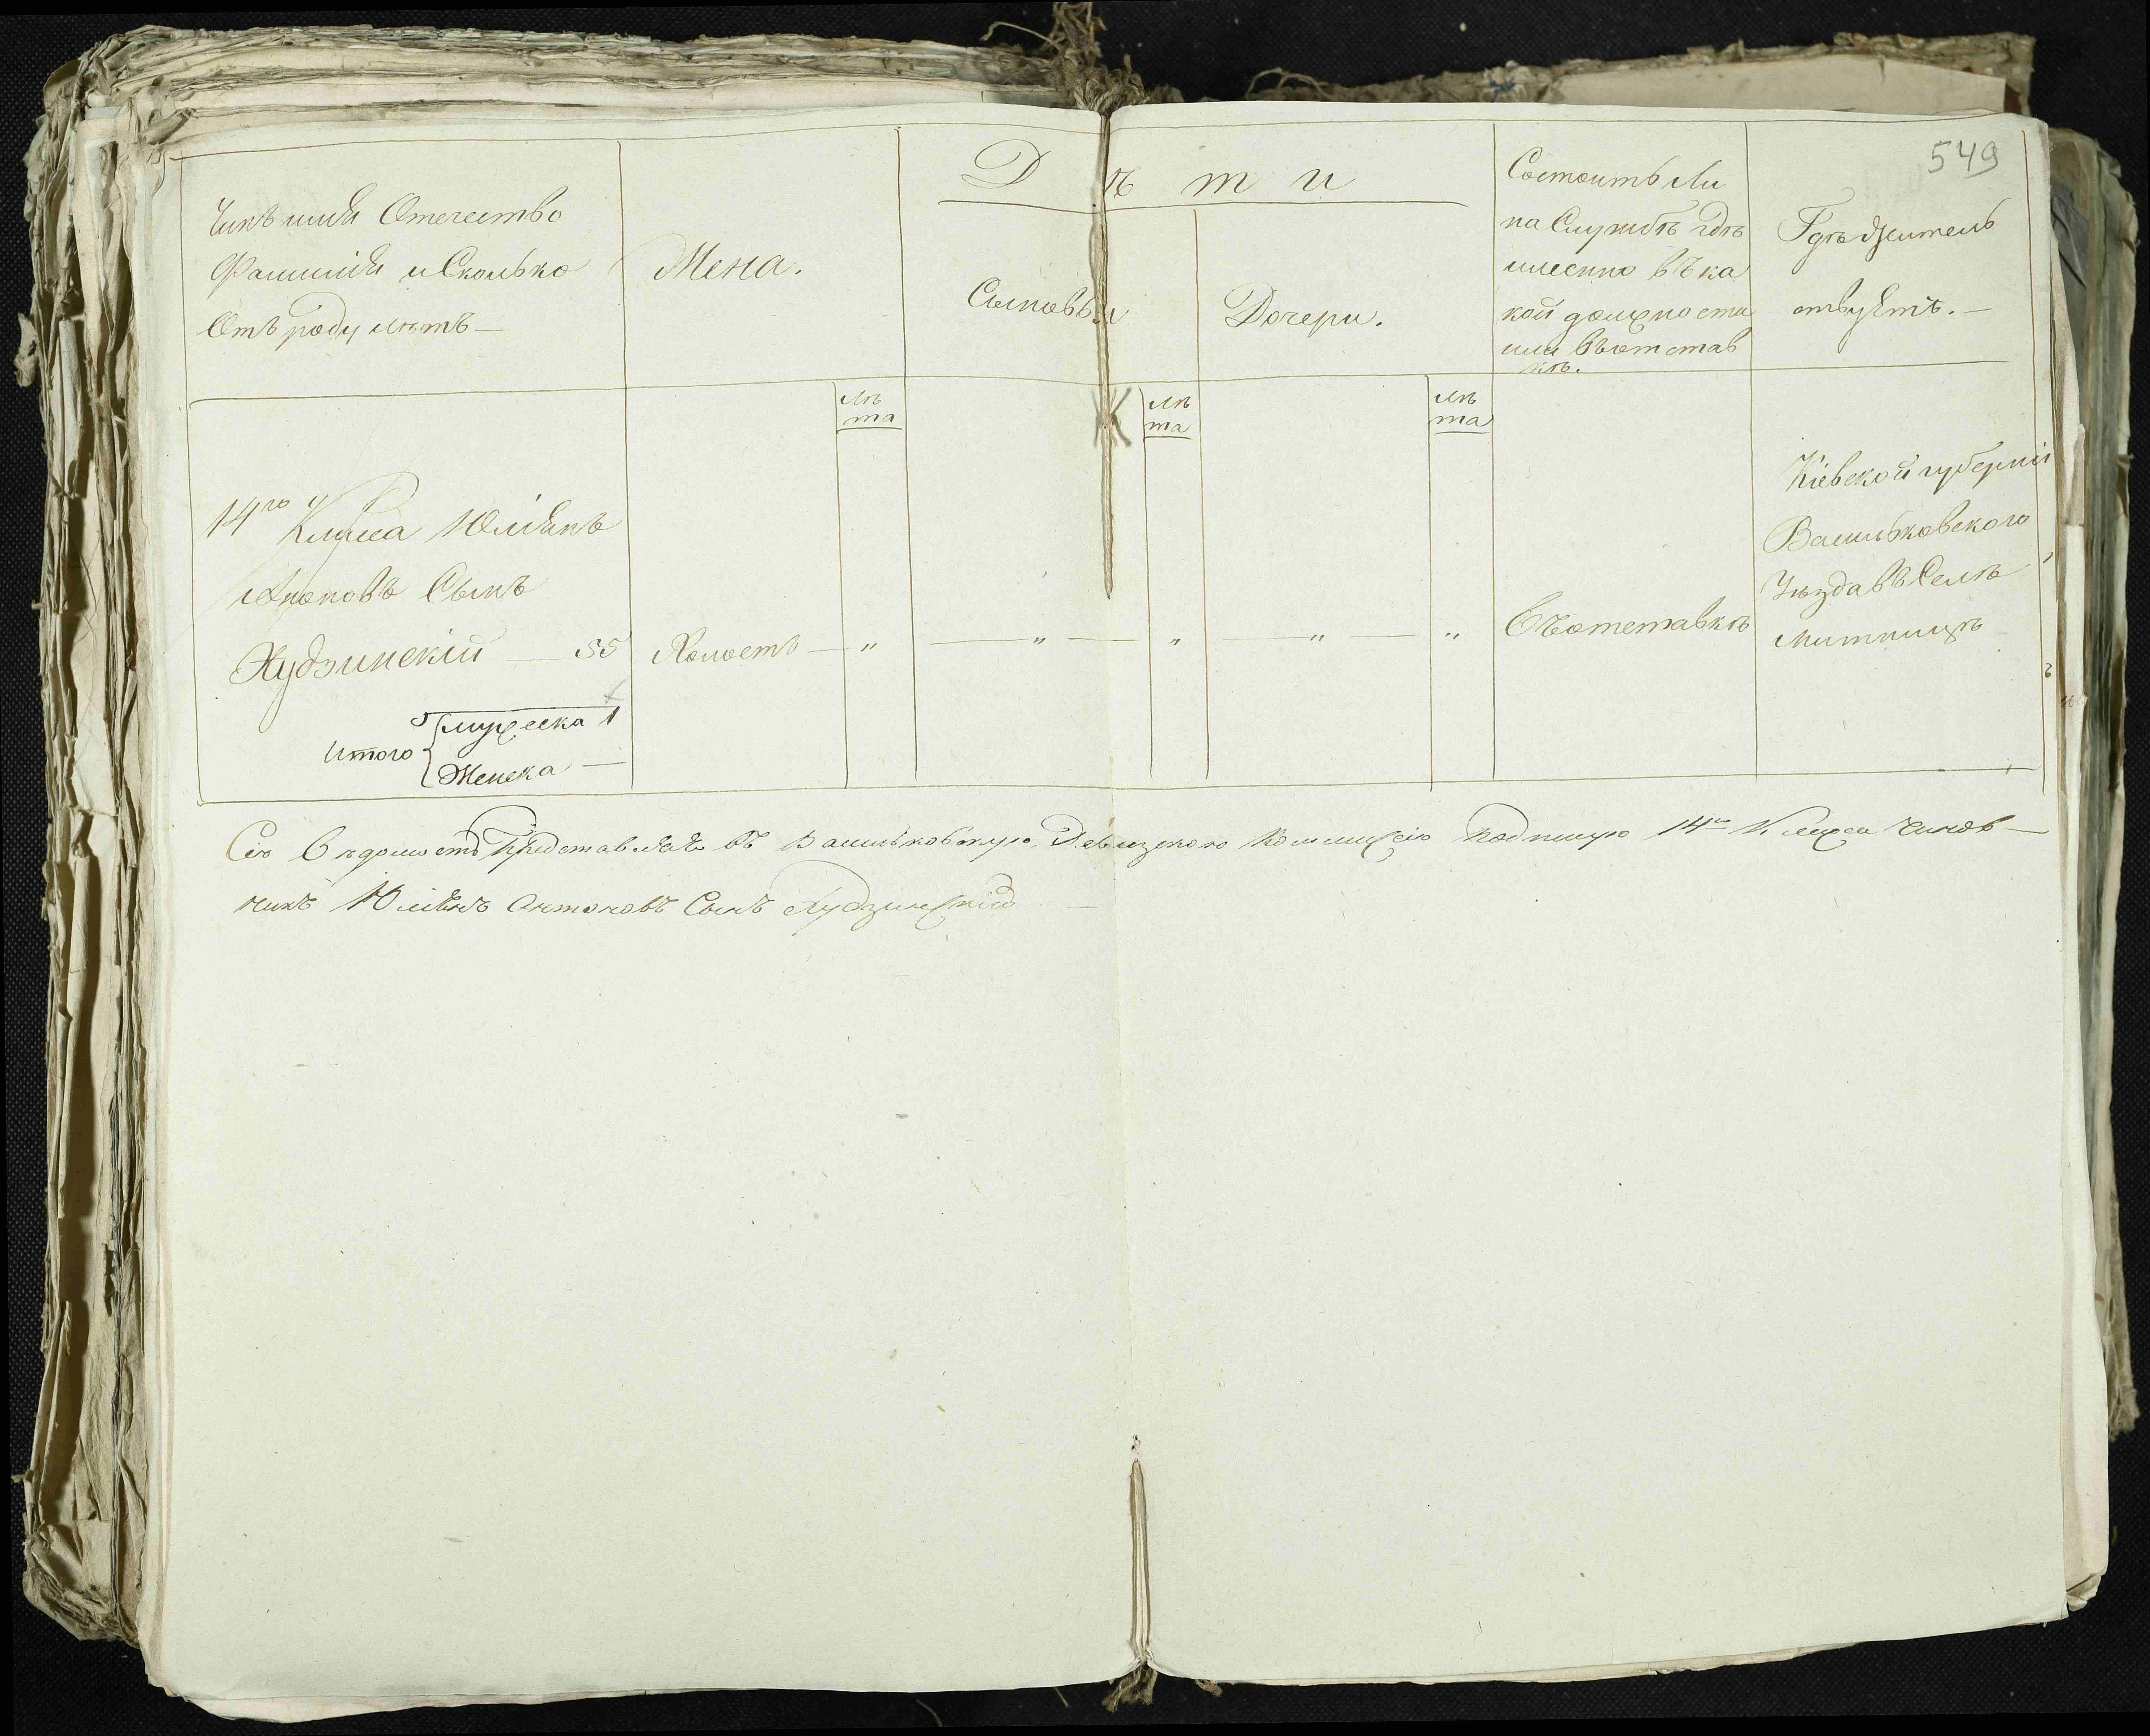 549
Чинъ имя Отечество
Фамилія и Сколько
Отъ роду лѣтъ —
Жена.
Дѣти
Сыновья
Дочери.
Состоитъ ли
на Службѣ гдѣ
именно въ ка
кой должности
или въ отстав
кѣ.
Гдѣ жител
ствуетъ. —
лѣ
та
лѣ
та
лѣ
та
14го Класса Юліанъ
Антоновъ Сынъ
Худзинскій — 55
Холостъ — „ — „ — „ — „ — „
Въ отставкѣ
Кіевской губерніи
Васильковскаго
Уѣзда въ Селѣ
Митницѣ
Итого
мужеска 1
Женска —
Сію Вѣдомость Представляя въ Васильковскую Ревизскою Коммисію подпишу 14го Класса Чинов—
никъ Юліянъ Антоновъ Сынъ Худзинскій —